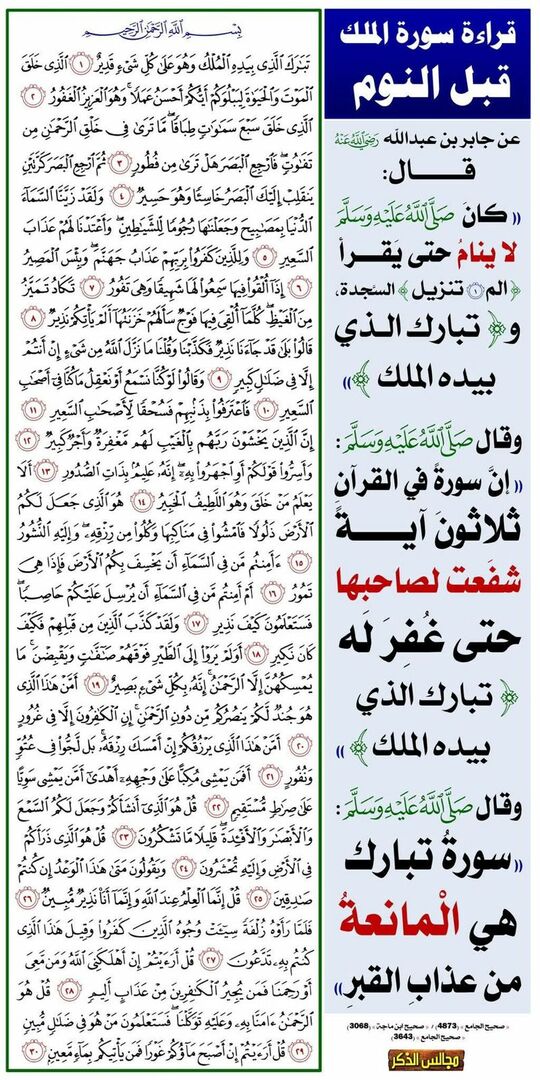 قراءة سورة الملك
قبل النوم
عن جابر بن عبدالله رَضِيَ اللَّهُ عَنْهُ
قــــال:
(( كان صَلَّى اللَّهُ عَلَيْهِ وَسَلَّمَ
لا ينامُ حتى يَقــرأ
﴿ الم ۝١ تنزيل ﴾ السجدة،
و﴿ تبارك الـذي
بيده الملك ﴾ ))
وقال صَلَّى اللَّهُ عَلَيْهِ وَسَلَّمَ :
(( إنَّ سورةً في القرآن
ثلاثونَ آيــةً
شفَعت لصاحبها
حتى غُفِرَ لَه
﴿ تبارك الذي
بيده الملك ﴾ ))
وقال صَلَّى اللَّهُ عَلَيْهِ وَسَلَّمَ :
((سورةُ تبارك
هي الْمانعةُ
من عذابِ القبرِ))
« صحيح الجامع » (4873) / « صحيح ابن ماجة » (3068)
« صحيح الجامع » (3643)
مجالس الذكر
بِسْمِ اللَّهِ الرَّحْمَٰنِ الرَّحِيمِ
تَبَارَكَ الَّذِي بِيَدِهِ الْمُلْكُ وَهُوَ عَلَىٰ كُلِّ شَيْءٍ قَدِيرٌ ۝١ الَّذِي خَلَقَ
الْمَوْتَ وَالْحَيَاةَ لِيَبْلُوَكُمْ أَيُّكُمْ أَحْسَنُ عَمَلًا ۚ وَهُوَ الْعَزِيزُ الْغَفُورُ ۝٢
الَّذِي خَلَقَ سَبْعَ سَمَاوَاتٍ طِبَاقًا ۖ مَّا تَرَىٰ فِي خَلْقِ الرَّحْمَٰنِ مِن
تَفَاوُتٍ ۖ فَارْجِعِ الْبَصَرَ هَلْ تَرَىٰ مِن فُطُورٍ ۝٣ ثُمَّ ارْجِعِ الْبَصَرَ كَرَّتَيْنِ
يَنقَلِبْ إِلَيْكَ الْبَصَرُ خَاسِئًا وَهُوَ حَسِيرٌ ۝٤ وَلَقَدْ زَيَّنَّا السَّمَاءَ
الدُّنْيَا بِمَصَابِيحَ وَجَعَلْنَاهَا رُجُومًا لِّلشَّيَاطِينِ ۖ وَأَعْتَدْنَا لَهُمْ عَذَابَ
السَّعِيرِ ۝٥ وَلِلَّذِينَ كَفَرُوا بِرَبِّهِمْ عَذَابُ جَهَنَّمَ ۖ وَبِئْسَ الْمَصِيرُ
۝٦ إِذَا أُلْقُوا فِيهَا سَمِعُوا لَهَا شَهِيقًا وَهِيَ تَفُورُ ۝٧ تَكَادُ تَمَيَّزُ
مِنَ الْغَيْظِ ۖ كُلَّمَا أُلْقِيَ فِيهَا فَوْجٌ سَأَلَهُمْ خَزَنَتُهَا أَلَمْ يَأْتِكُمْ نَذِيرٌ ۝٨
قَالُوا بَلَىٰ قَدْ جَاءَنَا نَذِيرٌ فَكَذَّبْنَا وَقُلْنَا مَا نَزَّلَ اللَّهُ مِن شَيْءٍ إِنْ أَنتُمْ
إِلَّا فِي ضَلَالٍ كَبِيرٍ ۝٩ وَقَالُوا لَوْ كُنَّا نَسْمَعُ أَوْ نَعْقِلُ مَا كُنَّا فِي أَصْحَابِ
السَّعِيرِ ۝١٠ فَاعْتَرَفُوا بِذَنبِهِمْ فَسُحْقًا لِّأَصْحَابِ السَّعِيرِ ۝١١
إِنَّ الَّذِينَ يَخْشَوْنَ رَبَّهُم بِالْغَيْبِ لَهُم مَّغْفِرَةٌ وَأَجْرٌ كَبِيرٌ ۝١٢
وَأَسِرُّوا قَوْلَكُمْ أَوِ اجْهَرُوا بِهِ ۖ إِنَّهُ عَلِيمٌ بِذَاتِ الصُّدُورِ ۝١٣ أَلَا
يَعْلَمُ مَنْ خَلَقَ وَهُوَ اللَّطِيفُ الْخَبِيرُ ۝١٤ هُوَ الَّذِي جَعَلَ لَكُمُ
الْأَرْضَ ذَلُولًا فَامْشُوا فِي مَنَاكِبِهَا وَكُلُوا مِن رِّزْقِهِ ۖ وَإِلَيْهِ النُّشُورُ
۝١٥ ءَأَمِنتُم مَّن فِي السَّمَاءِ أَن يَخْسِفَ بِكُمُ الْأَرْضَ فَإِذَا هِيَ
تَمُورُ ۝١٦ أَمْ أَمِنتُم مَّن فِي السَّمَاءِ أَن يُرْسِلَ عَلَيْكُمْ حَاصِبًا ۖ
فَسَتَعْلَمُونَ كَيْفَ نَذِيرِ ۝١٧ وَلَقَدْ كَذَّبَ الَّذِينَ مِن قَبْلِهِمْ فَكَيْفَ
كَانَ نَكِيرِ ۝١٨ أَوَلَمْ يَرَوْا إِلَى الطَّيْرِ فَوْقَهُمْ صَافَّاتٍ وَيَقْبِضْنَ ۚ مَا
يُمْسِكُهُنَّ إِلَّا الرَّحْمَٰنُ ۚ إِنَّهُ بِكُلِّ شَيْءٍ بَصِيرٌ ۝١٩ أَمَّنْ هَٰذَا الَّذِي
هُوَ جُندٌ لَّكُمْ يَنصُرُكُم مِّن دُونِ الرَّحْمَٰنِ ۚ إِنِ الْكَافِرُونَ إِلَّا فِي غُرُورٍ
۝٢٠ أَمَّنْ هَٰذَا الَّذِي يَرْزُقُكُمْ إِنْ أَمْسَكَ رِزْقَهُ ۚ بَل لَّجُّوا فِي عُتُوٍّ
وَنُفُورٍ ۝٢١ أَفَمَن يَمْشِي مُكِبًّا عَلَىٰ وَجْهِهِ أَهْدَىٰ أَمَّن يَمْشِي سَوِيًّا
عَلَىٰ صِرَاطٍ مُّسْتَقِيمٍ ۝٢٢ قُلْ هُوَ الَّذِي أَنشَأَكُمْ وَجَعَلَ لَكُمُ السَّمْعَ
وَالْأَبْصَارَ وَالْأَفْئِدَةَ ۖ قَلِيلًا مَّا تَشْكُرُونَ ۝٢٣ قُلْ هُوَ الَّذِي ذَرَأَكُمْ
فِي الْأَرْضِ وَإِلَيْهِ تُحْشَرُونَ ۝٢٤ وَيَقُولُونَ مَتَىٰ هَٰذَا الْوَعْدُ إِن كُنتُمْ
صَادِقِينَ ۝٢٥ قُلْ إِنَّمَا الْعِلْمُ عِندَ اللَّهِ وَإِنَّمَا أَنَا نَذِيرٌ مُّبِينٌ ۝٢٦
فَلَمَّا رَأَوْهُ زُلْفَةً سِيئَتْ وُجُوهُ الَّذِينَ كَفَرُوا وَقِيلَ هَٰذَا الَّذِي
كُنتُم بِهِ تَدَّعُونَ ۝٢٧ قُلْ أَرَءَيْتُمْ إِنْ أَهْلَكَنِيَ اللَّهُ وَمَن مَّعِيَ
أَوْ رَحِمَنَا فَمَن يُجِيرُ الْكَافِرِينَ مِنْ عَذَابٍ أَلِيمٍ ۝٢٨ قُلْ هُوَ
الرَّحْمَٰنُ ءَامَنَّا بِهِ وَعَلَيْهِ تَوَكَّلْنَا ۖ فَسَتَعْلَمُونَ مَنْ هُوَ فِي ضَلَالٍ مُّبِينٍ
۝٢٩ قُلْ أَرَءَيْتُمْ إِنْ أَصْبَحَ مَاؤُكُمْ غَوْرًا فَمَن يَأْتِيكُم بِمَاءٍ مَّعِينٍ ۝٣٠